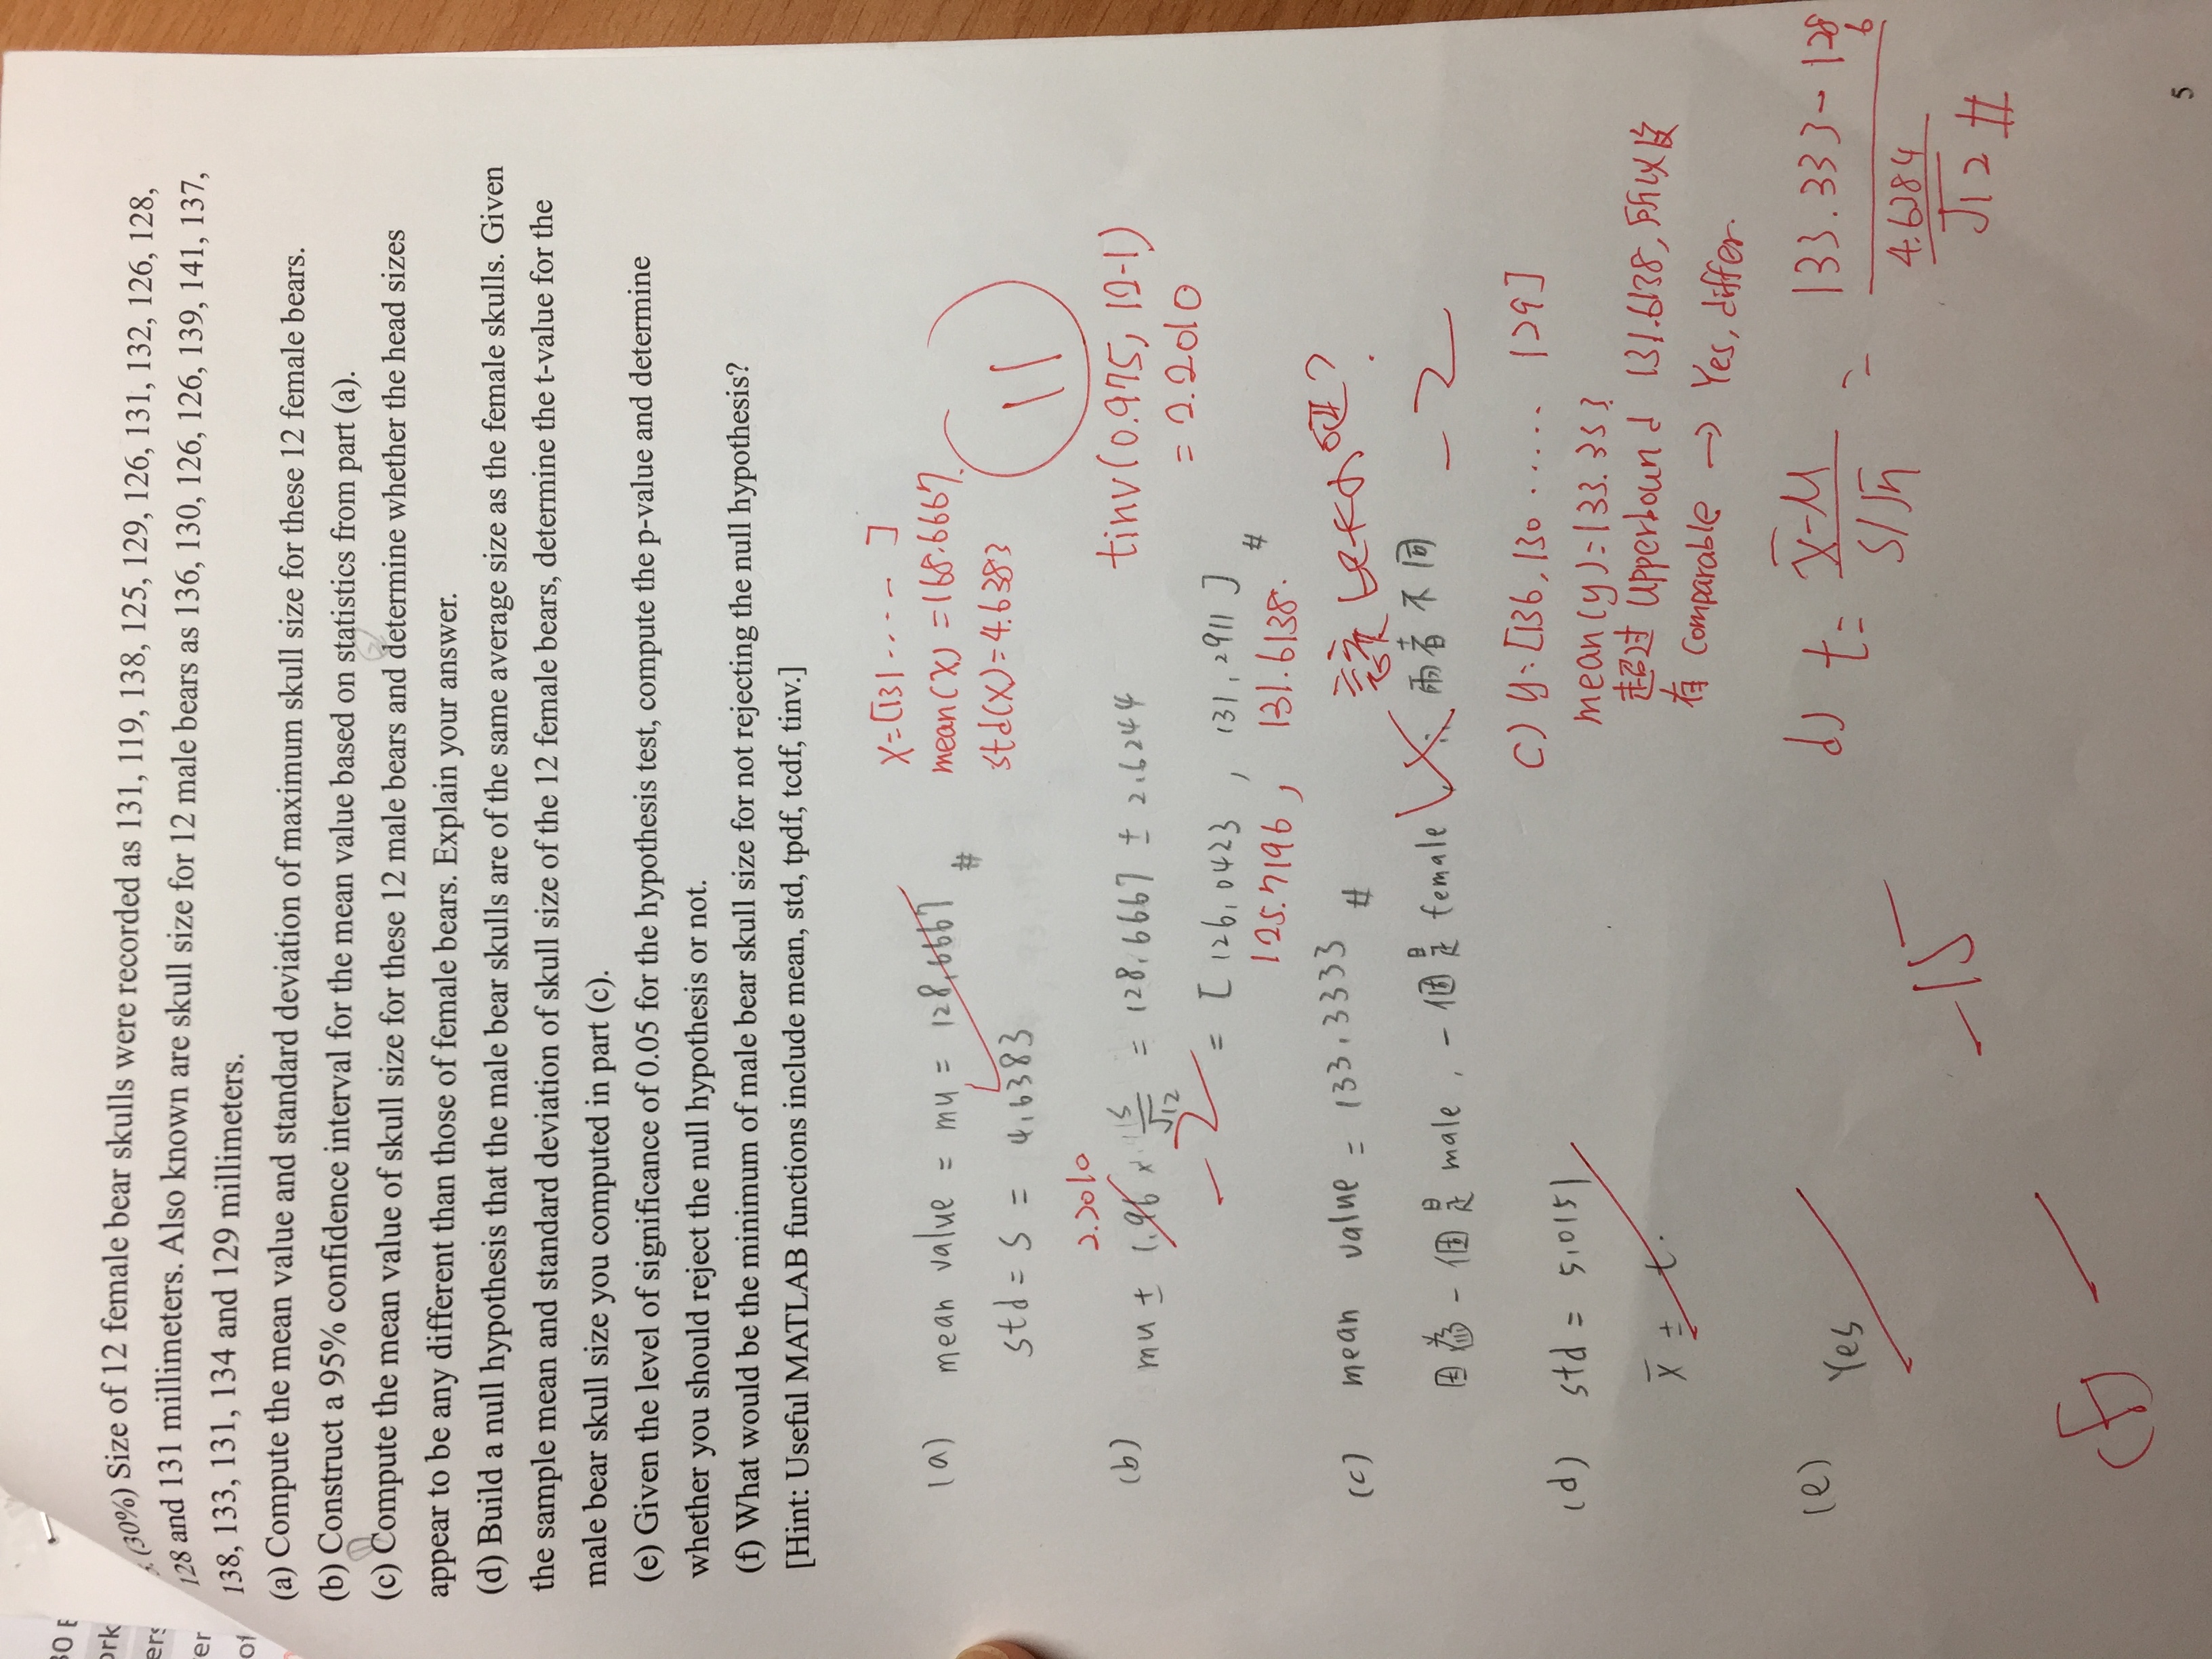 30 E
ork
ers
er
of
. (30%) Size of 12 female bear skulls were recorded as 131, 119, 138, 125, 129, 126, 131, 132, 126, 128,
128 and 131 millimeters. Also known are skull size for 12 male bears as 136, 130, 126, 126, 139, 141, 137,
138, 133, 131, 134 and 129 millimeters.
(a) Compute the mean value and standard deviation of maximum skull size for these 12 female bears.
(b) Construct a 95% confidence interval for the mean value based on statistics from part (a).
(c) Compute the mean value of skull size for these 12 male bears and determine whether the head sizes
appear to be any different than those of female bears. Explain your answer.
(d) Build a null hypothesis that the male bear skulls are of the same average size as the female skulls. Given
the sample mean and standard deviation of skull size of the 12 female bears, determine the t-value for the
male bear skull size you computed in part (c).
(e) Given the level of significance of 0.05 for the hypothesis test, compute the p-value and determine
whether you should reject the null hypothesis or not.
(f) What would be the minimum of male bear skull size for not rejecting the null hypothesis?
[Hint: Useful MATLAB functions include mean, std, tpdf, tcdf, tinv.]
X=[131 ····· ]
(a) mean value = mu = 128.6667 #
mean(X) =168.6667
std = S = 4.6383
std(X)=4.6383
11
2.2010
(b) mu ± 1.96 × S/√12 = 128.6667 ± 2.6244
tinv(0.975, 12-1)
= 2.2010
-2
= [ 126.0423 , 131.2911 ] #
125.7196, 131.6138.
(c) mean value = 133.3333 #
該比大小吧?
因為一個是 male , 一個是 female ∴ 兩者不同
-2
C) y=[136,130 ····· 129]
(d) std = 5.0151
mean(y)=133.333
x̄ ± t.
超过 upperbound 131.6138, 所以沒
有 comparable → Yes, differ.
(e) Yes
d) t= x̄-μ / S/√n = 133.333-128.6 / 4.6384/√12 #
-15
(f)
5